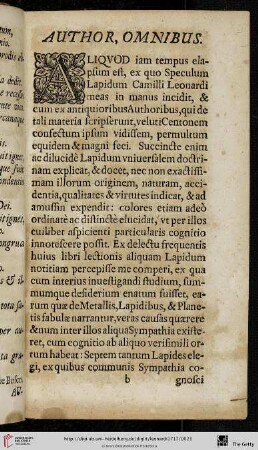 AUTHOR, OMNIBUS.
ALIQVOD iam tempus ela-
psum est, ex quo Speculum
Lapidum Camilli Leonardi
meas in manus incidit, &
cum ex antiquioribus Authoribus, qui de
tali materia scripserunt, veluti Centonem
confectum ipsum vidissem, permultum
equidem & magni feci. Succincte enim
ac dilucidè Lapidum vniuersalem doctri-
nam explicat, & docet, nec non exactissi-
mam illorum originem, naturam, acci-
dentia, qualitates & virtutes indicat, & ad
amussim expendit: colores etiam adeò
ordinatè ac distinctè elucidat, vt per illos
cuilibet aspicienti particularis cognitio
innotescere possit. Ex delectu frequentis
huius libri lectionis aliquam Lapidum
notitiam percepisse me comperi, ex qua
cum interius inuestigandi studium, sum-
mumque desiderium enatum fuisset, ea-
rum quæ de Metallis, Lapidibus, & Plane-
tis fabulæ narrantur, veras causas quærere
& num inter illos aliqua Sympathia existe-
ret, cum cognitio ab aliquo verisimili or-
tum habeat: Septem tantum Lapides ele-
gi, ex quibus communis Sympathia co-
b gnosci